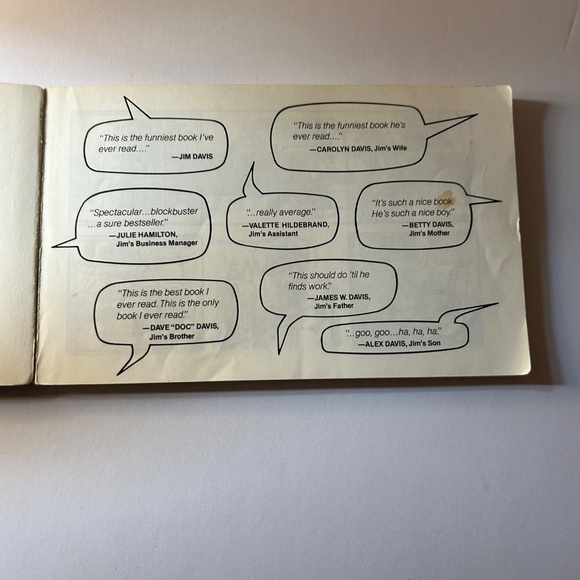 "This is the funniest book I've
ever read...."
—JIM DAVIS
"This is the funniest book he's
ever read...."
—CAROLYN DAVIS, Jim's Wife
"Spectacular...blockbuster
...a sure bestseller."
—JULIE HAMILTON,
Jim's Business Manager
"...really average."
—VALETTE HILDEBRAND,
Jim's Assistant
"It's such a nice book.
He's such a nice boy."
—BETTY DAVIS,
Jim's Mother
"This is the best book I
ever read. This is the only
book I ever read."
—DAVE "DOC" DAVIS,
Jim's Brother
"This should do 'til he
finds work."
—JAMES W. DAVIS,
Jim's Father
"...goo, goo...ha, ha, ha."
—ALEX DAVIS, Jim's Son